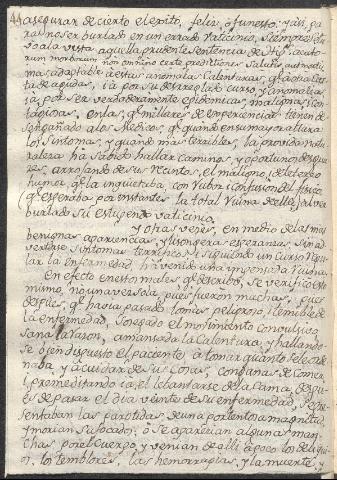 asegurar de cierto el exito, feliz, o funesto. y asi, pa
ra no ser burlado en un errado vaticinio, siempre es tu
vo a la vista aquella prudente sentencia de Hip. acuto
rum morborum non omnino certe preditiones salutis aut mortis
mas adaptable à estas anomalas Calenturas, qe à otra Cas
ta de agudas, ià por su desarreglado curso, y anomalia
ià, por ser verdaderamente epidemicas, malignas, i con
tagiosas, en las, qe millares de experiencias tienen de
sengañado a los Medicos, qe quando en su mayor altura
los sintomas, y quando mas terribles, la provida natu
raleza ha sabido hallar camino, y oportunos desague
res, arrojando de su Recinto, el maligno, i deletereo
humor, qe la inquietaba, con rubor i confusion del fisico
(qe esperaba por instantes la total ruina de ella) al ver
burlado su estupendo vaticinio.
Y otras veses, en medio de las mas
benignas apariencias, y lisongeras esperanzas sin ad
vertirse sintomas terrificos, ni siguiendo un curso regu
lar la enfermedad, ha venido una impensada ruina.
En efecto en estos males qe describo, se verifico esto
mismo, no una vez sola, pues fueron muchas, pues
despues, qe havia pasado lo mas peligroso, i temible de
la enfermedad, sosegado el movimiento convulsivo
sana la razon, amansada la Calentura, y hallando
se bien dispuesto el paciente, à tomar quanto se le orde
naba, y a cuidar de sus cosas, con ganas de comer
i, premeditando ià, el lebantarse de la Cama, despu
es de pasar el dia veinte de su enfermedad, se pre
sentaban las parotidas de una portentosa magnitud,
y morian sufocados; ò se aparecian algunas man
chas por el Cuerpo, y venian de alli, à poco los deliqui
os, los temblores, las hemorragias, y la muerte, y